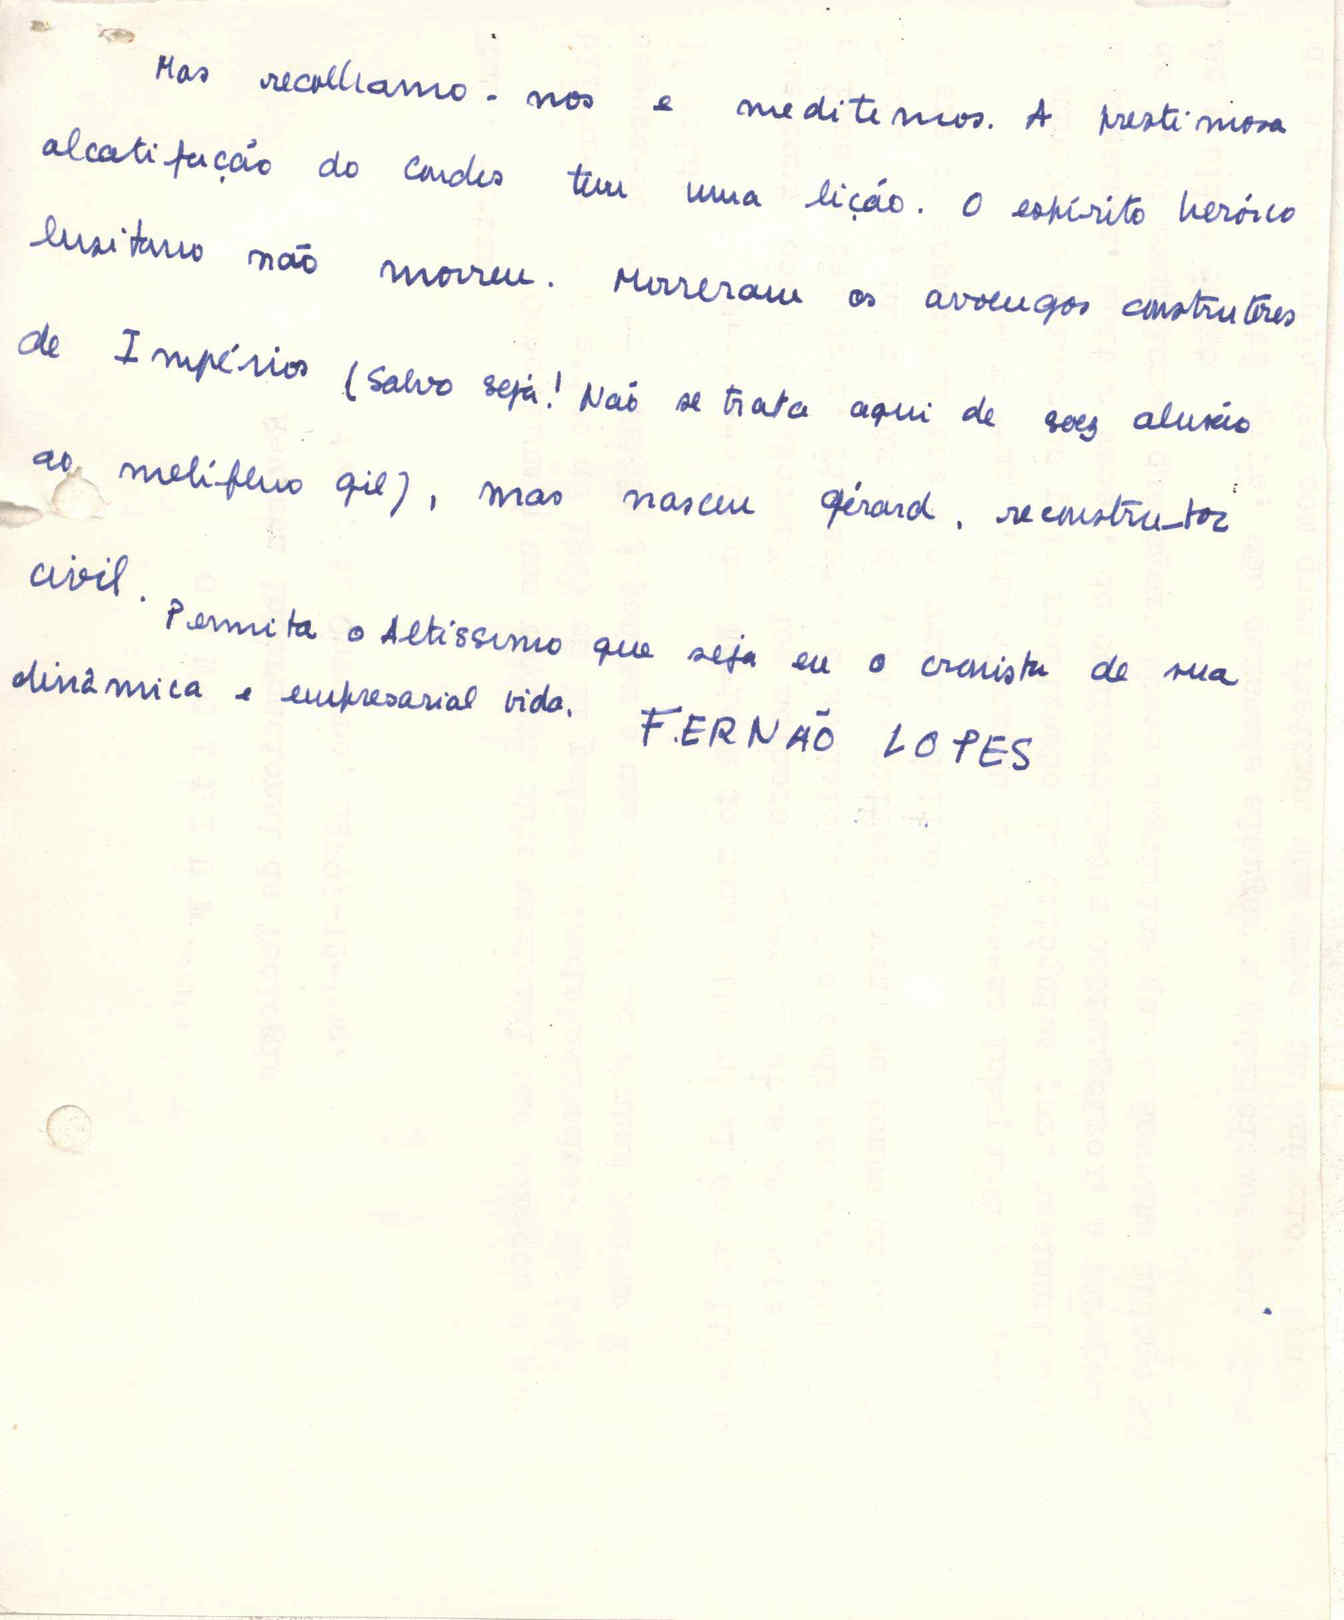 Mas recolhamo-nos e meditemos. A prestimosa
alcatifação do Condes tem uma lição. O espírito heróico
lusitano não morreu. Morreram os avoengos construtores
de Impérios (Salvo seja! Não se trata aqui de soez alusão
ao melífluo Gil), mas nasceu Gérard, reconstrutor
civil.
Permita o Altíssimo que seja eu o cronista de sua
dinâmica e empresarial vida.
FERNÃO LOPES